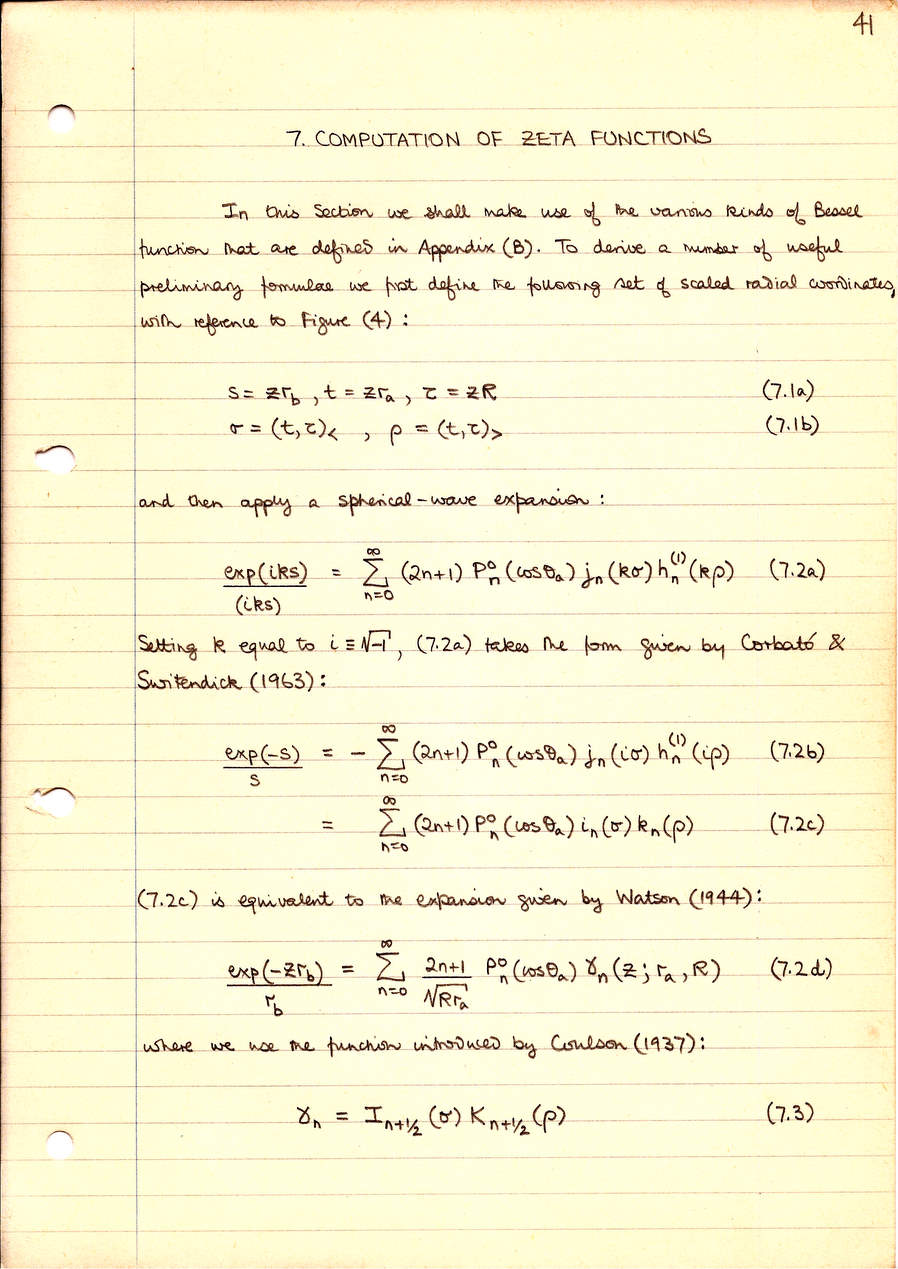 41
7. COMPUTATION OF ZETA FUNCTIONS
In this Section we shall make use of the various kinds of Bessel
function that are defined in Appendix (B). To derive a number of useful
preliminary formulae we first define the following set of scaled radial coordinates,
with reference to Figure (4) :
s = zr_b , t = zr_a , τ = zR (7.1a)
σ = (t,τ)_< , ρ = (t,τ)_> (7.1b)
and then apply a spherical-wave expansion :
exp(iks)/(iks) = ∑_{n=0}^{∞} (2n+1) P_n^0 (cosθ_a) j_n (kσ) h_n^{(1)} (kρ) (7.2a)
Setting k equal to i ≡ √-1, (7.2a) takes the form given by Corbató &
Switendick (1963) :
exp(-s)/s = - ∑_{n=0}^{∞} (2n+1) P_n^0 (cosθ_a) j_n (iσ) h_n^{(1)} (iρ) (7.2b)
= ∑_{n=0}^{∞} (2n+1) P_n^0 (cosθ_a) i_n (σ) k_n (ρ) (7.2c)
(7.2c) is equivalent to the expansion given by Watson (1944) :
exp(-zr_b)/r_b = ∑_{n=0}^{∞} (2n+1)/√(Rr_a) P_n^0 (cosθ_a) γ_n (z ; r_a , R) (7.2d)
where we use the function introduced by Coulson (1937) :
γ_n = I_{n+1/2} (σ) K_{n+1/2} (ρ) (7.3)